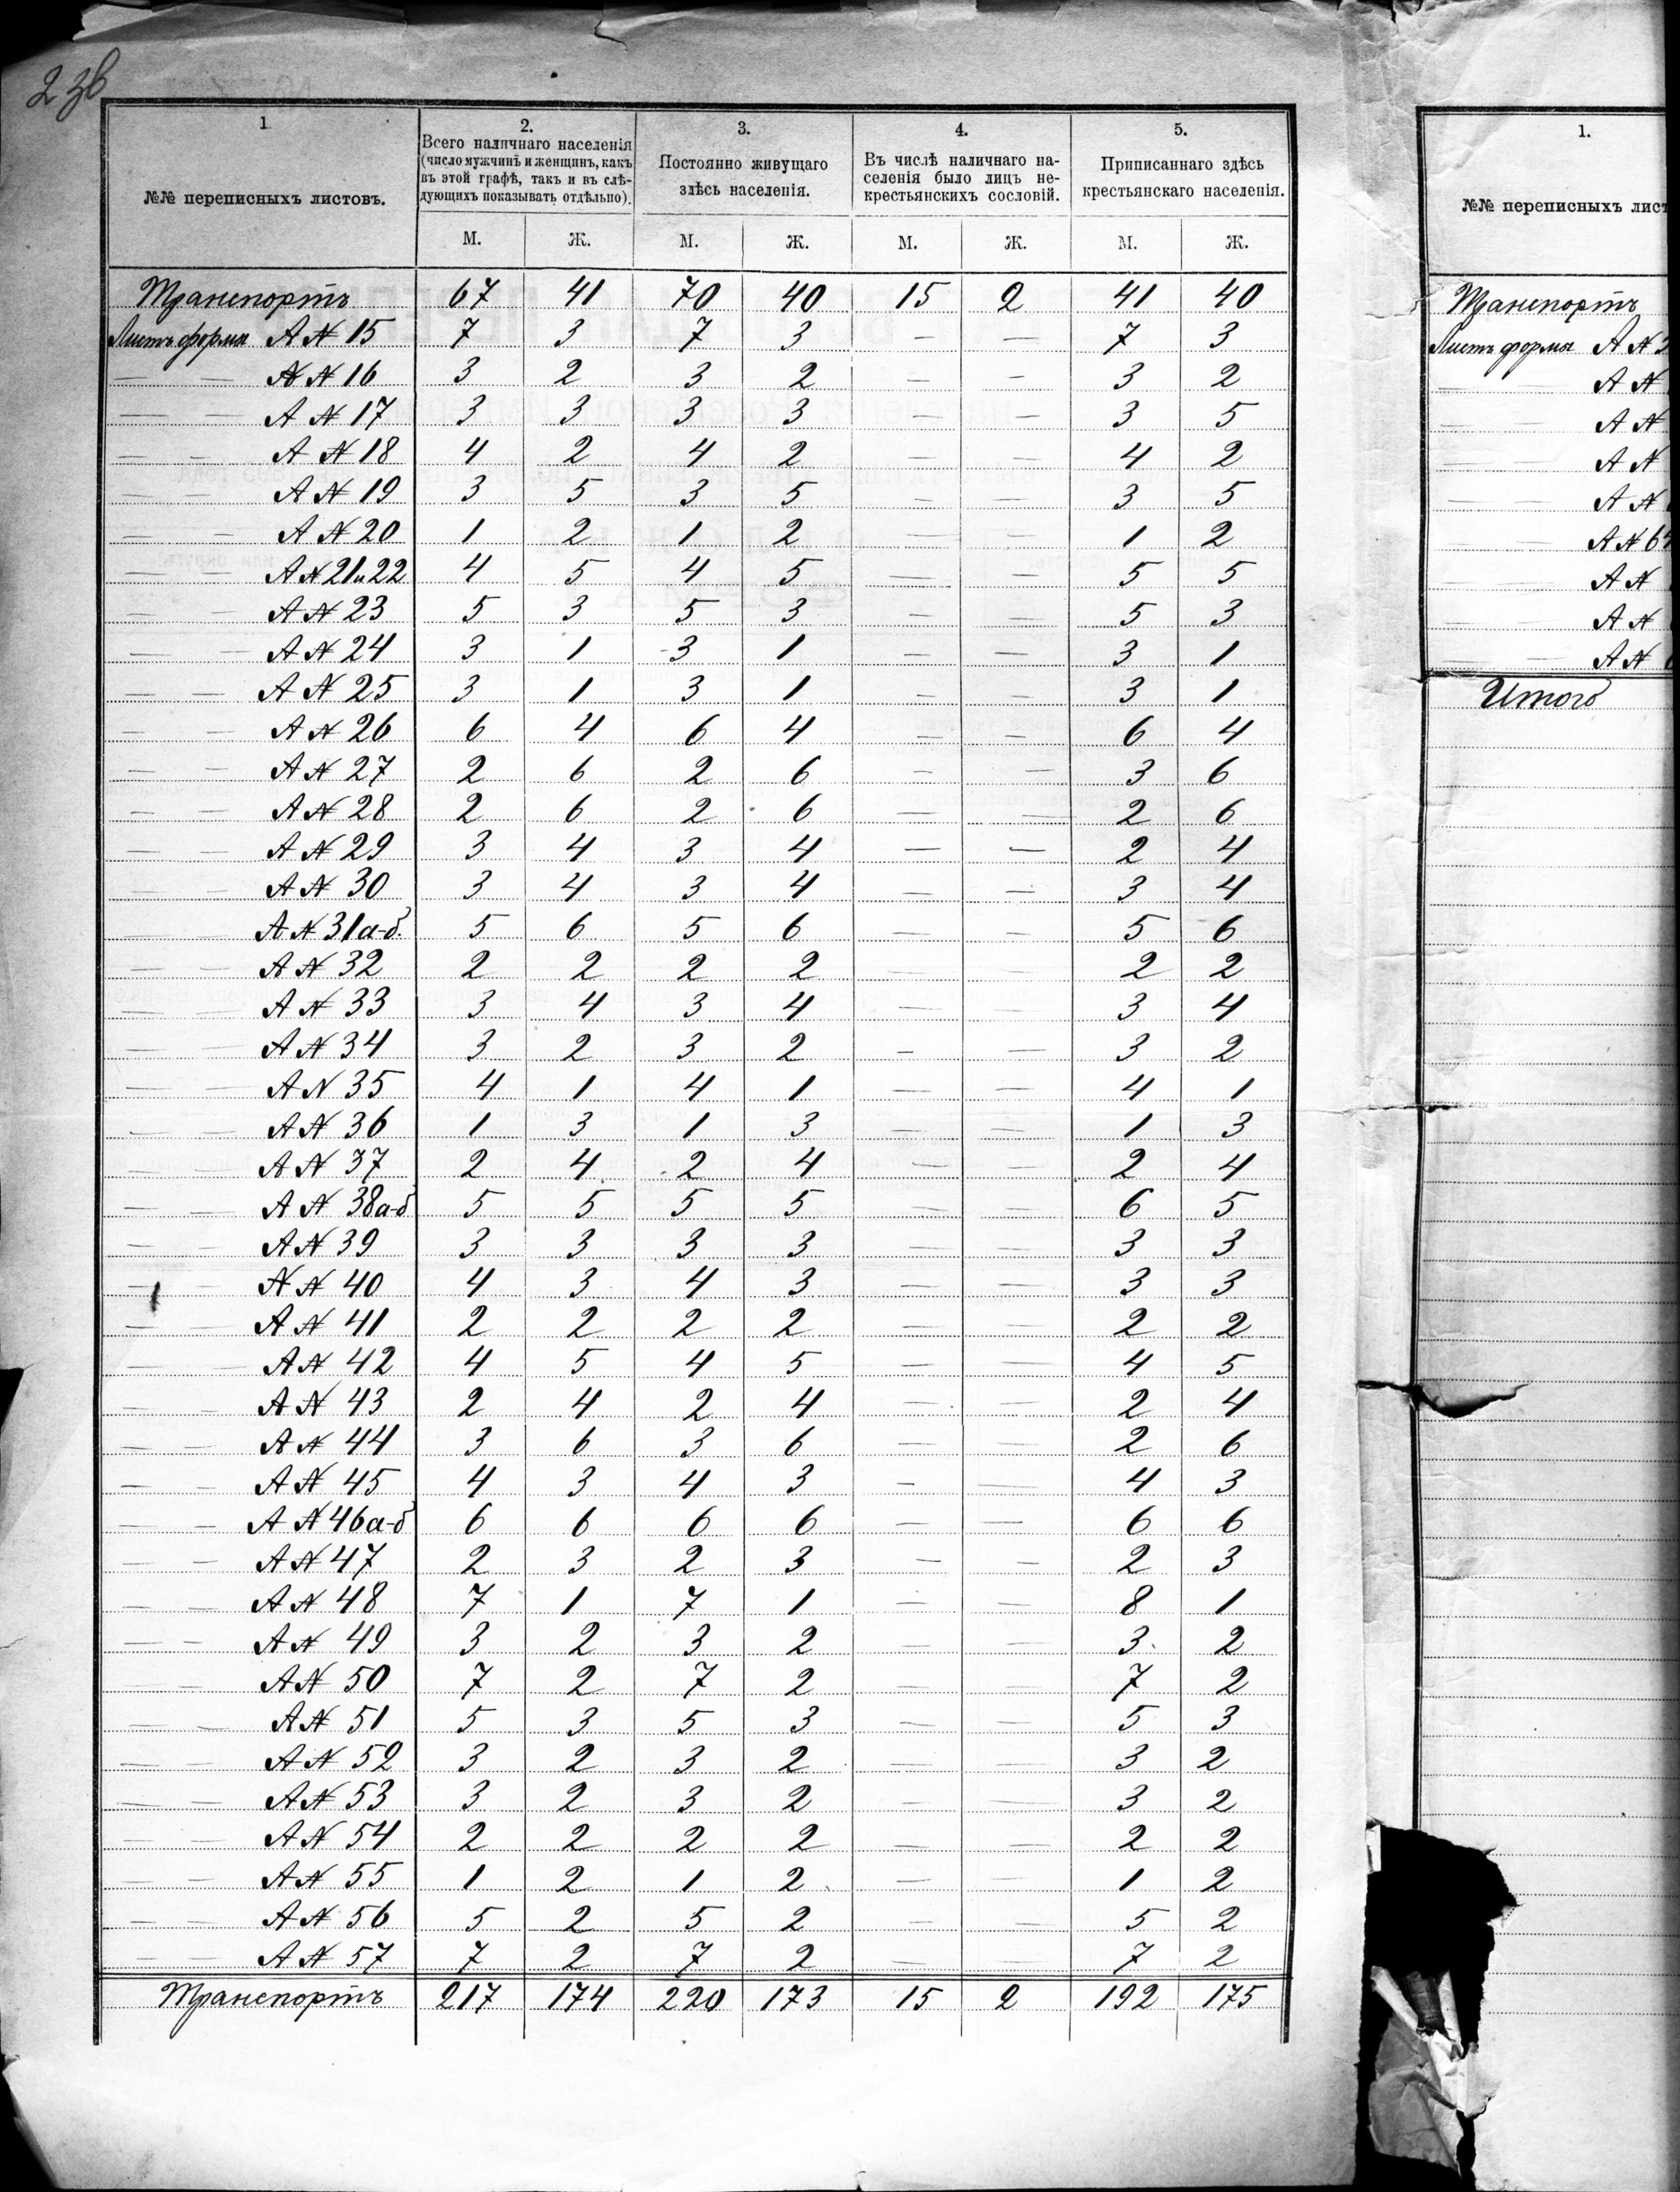 23в
1
№№ переписныхъ листовъ.
2.
Всего наличнаго населенія
(число мужчинъ и женщинъ, какъ
въ этой графѣ, такъ и въ слѣ-
дующихъ показывать отдѣльно).
3.
Постоянно живущаго
здѣсь населенія.
4.
Въ числѣ наличнаго на-
селенія было лицъ не-
крестьянскихъ сословій.
5.
Приписаннаго здѣсь
крестьянскаго населенія.
М. Ж. М. Ж. М. Ж. М. Ж.
Транспортъ 67 41 70 40 15 2 41 40
Листъ формы А № 15 7 3 7 3 — — 7 3
— — А № 16 3 2 3 2 — — 3 2
— — А № 17 3 3 3 3 — — 3 5
— — А № 18 4 2 4 2 — — 4 2
— — А № 19 3 5 3 5 — — 3 5
— — А № 20 1 2 1 2 — — 1 2
— — А № 21 и 22 4 5 4 5 — — 5 5
— — А № 23 5 3 5 3 — — 5 3
— — А № 24 3 1 3 1 — — 3 1
— — А № 25 3 1 3 1 — — 3 1
— — А № 26 6 4 6 4 — — 6 4
— — А № 27 2 6 2 6 — — 3 6
— — А № 28 2 6 2 6 — — 2 6
— — А № 29 3 4 3 4 — — 2 4
— — А № 30 3 4 3 4 — — 3 4
— — А № 31а-б. 5 6 5 6 — — 5 6
— — А № 32 2 2 2 2 — — 2 2
— — А № 33 3 4 3 4 — — 3 4
— — А № 34 3 2 3 2 — — 3 2
— — А № 35 4 1 4 1 — — 4 1
— — А № 36 1 3 1 3 — — 1 3
— — А № 37 2 4 2 4 — — 2 4
— — А № 38а-б 5 5 5 5 — — 6 5
— — А № 39 3 3 3 3 — — 3 3
— — А № 40 4 3 4 3 — — 3 3
— — А № 41 2 2 2 2 — — 2 2
— — А № 42 4 5 4 5 — — 4 5
— — А № 43 2 4 2 4 — — 2 4
— — А № 44 3 6 3 6 — — 2 6
— — А № 45 4 3 4 3 — — 4 3
— — А № 46а-б 6 6 6 6 — — 6 6
— — А № 47 2 3 2 3 — — 2 3
— — А № 48 7 1 7 1 — — 8 1
— — А № 49 3 2 3 2 — — 3 2
— — А № 50 7 2 7 2 — — 7 2
— — А № 51 5 3 5 3 — — 5 3
— — А № 52 3 2 3 2 — — 3 2
— — А № 53 3 2 3 2 — — 3 2
— — А № 54 2 2 2 2 — — 2 2
— — А № 55 1 2 1 2 — — 1 2
— — А № 56 5 2 5 2 — — 5 2
— — А № 57 7 2 7 2 — — 7 2
Транспортъ 217 174 220 173 15 2 192 175
1.
№№ переписныхъ лист
Транспортъ
Листъ формы А №
— — А №
— — А №
— — А №
— — А №
— — А № 6
— — А №
— — А №
— — А №
Итого